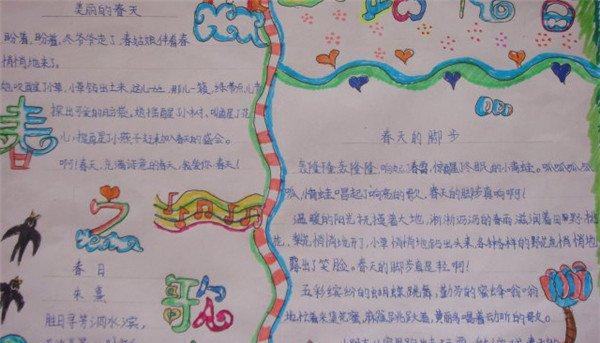 美丽的春天
盼着,盼着,冬爷爷走了,春姑娘伴着春
悄悄地来了。
她吹醒了小草,小草钻出土来,这儿一丛,那儿一簇,
探出可爱的脑袋。她摇醒了小树,叫醒了花
儿,提醒了小燕子赶来加入春天的盛会。
啊!春天,充满诗意的春天,我爱你春天!
春
之
歌
春日
朱熹
胜日寻芳泗水滨,
春天的脚步
轰隆隆轰隆隆,响起了春雷,惊醒了冬眠的小青蛙。呱呱呱呱
呱,青蛙唱起了响亮的歌,春天的脚步真响啊!
温暖的阳光抚摸着大地,淅淅沥沥的春雨滋润着田野
梨花悄悄地开了,小草悄悄地钻出头来,各种各样的野花也悄悄地
露出了笑脸。春天的脚步真是轻啊!
五彩缤纷的蝴蝶跳舞,勤劳的蜜蜂嗡嗡
地忙着采集花蜜,麻雀乱跳大直,黄鹂鸟唱着动听的歌。